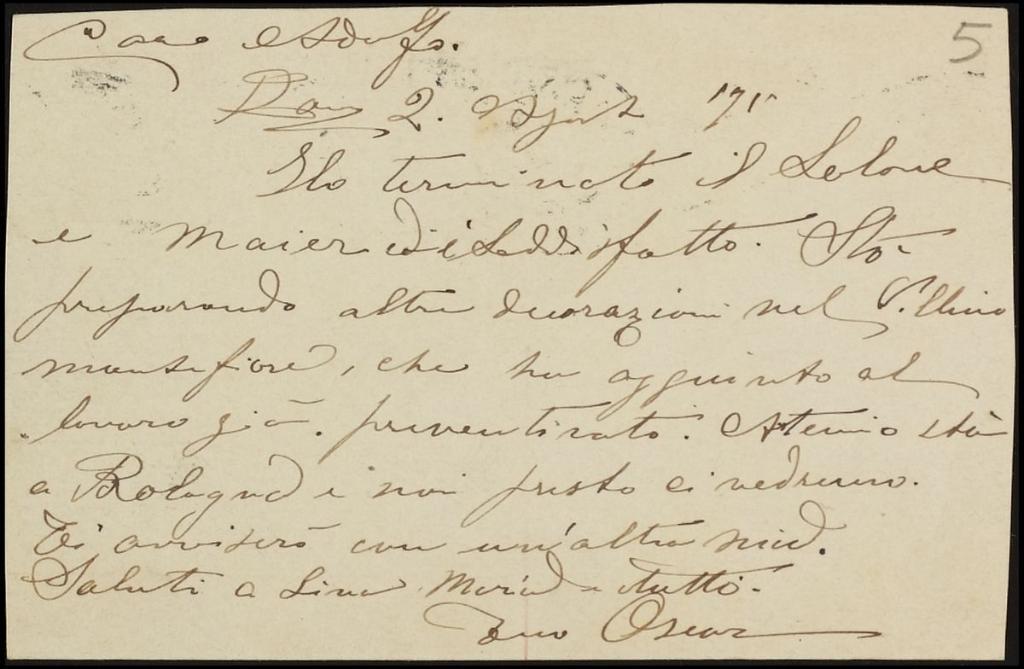 5
Caro Adolfo.
2. Agosto "71"
Ho terminato il Salone
e Maier è soddisfatto. Sto
preparando altre decorazioni nel
montefiore, che ha aggiunto al
lavoro già preventivato. stà
a Bologna e noi presto ci vedremo.
Ti avviserò con un'altra mia.
Saluti a Lina Maria e tutti.
Tuo Oscar